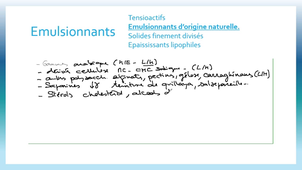 Emulsionnants
Tensioactifs
Emulsionnants d'origine naturelle.
Solides finement divisés
Epaississants lipophiles
- Gommes arabique (H/E - L/H)
- dérivés cellulose MC - CMC sodique - (L/H)
- autres polysacch alginate, pectines, gélose, carraghénanes (L/H)
- Saponines teinture de quillaya, salsepareille..
- Stérols cholestérol, alcools